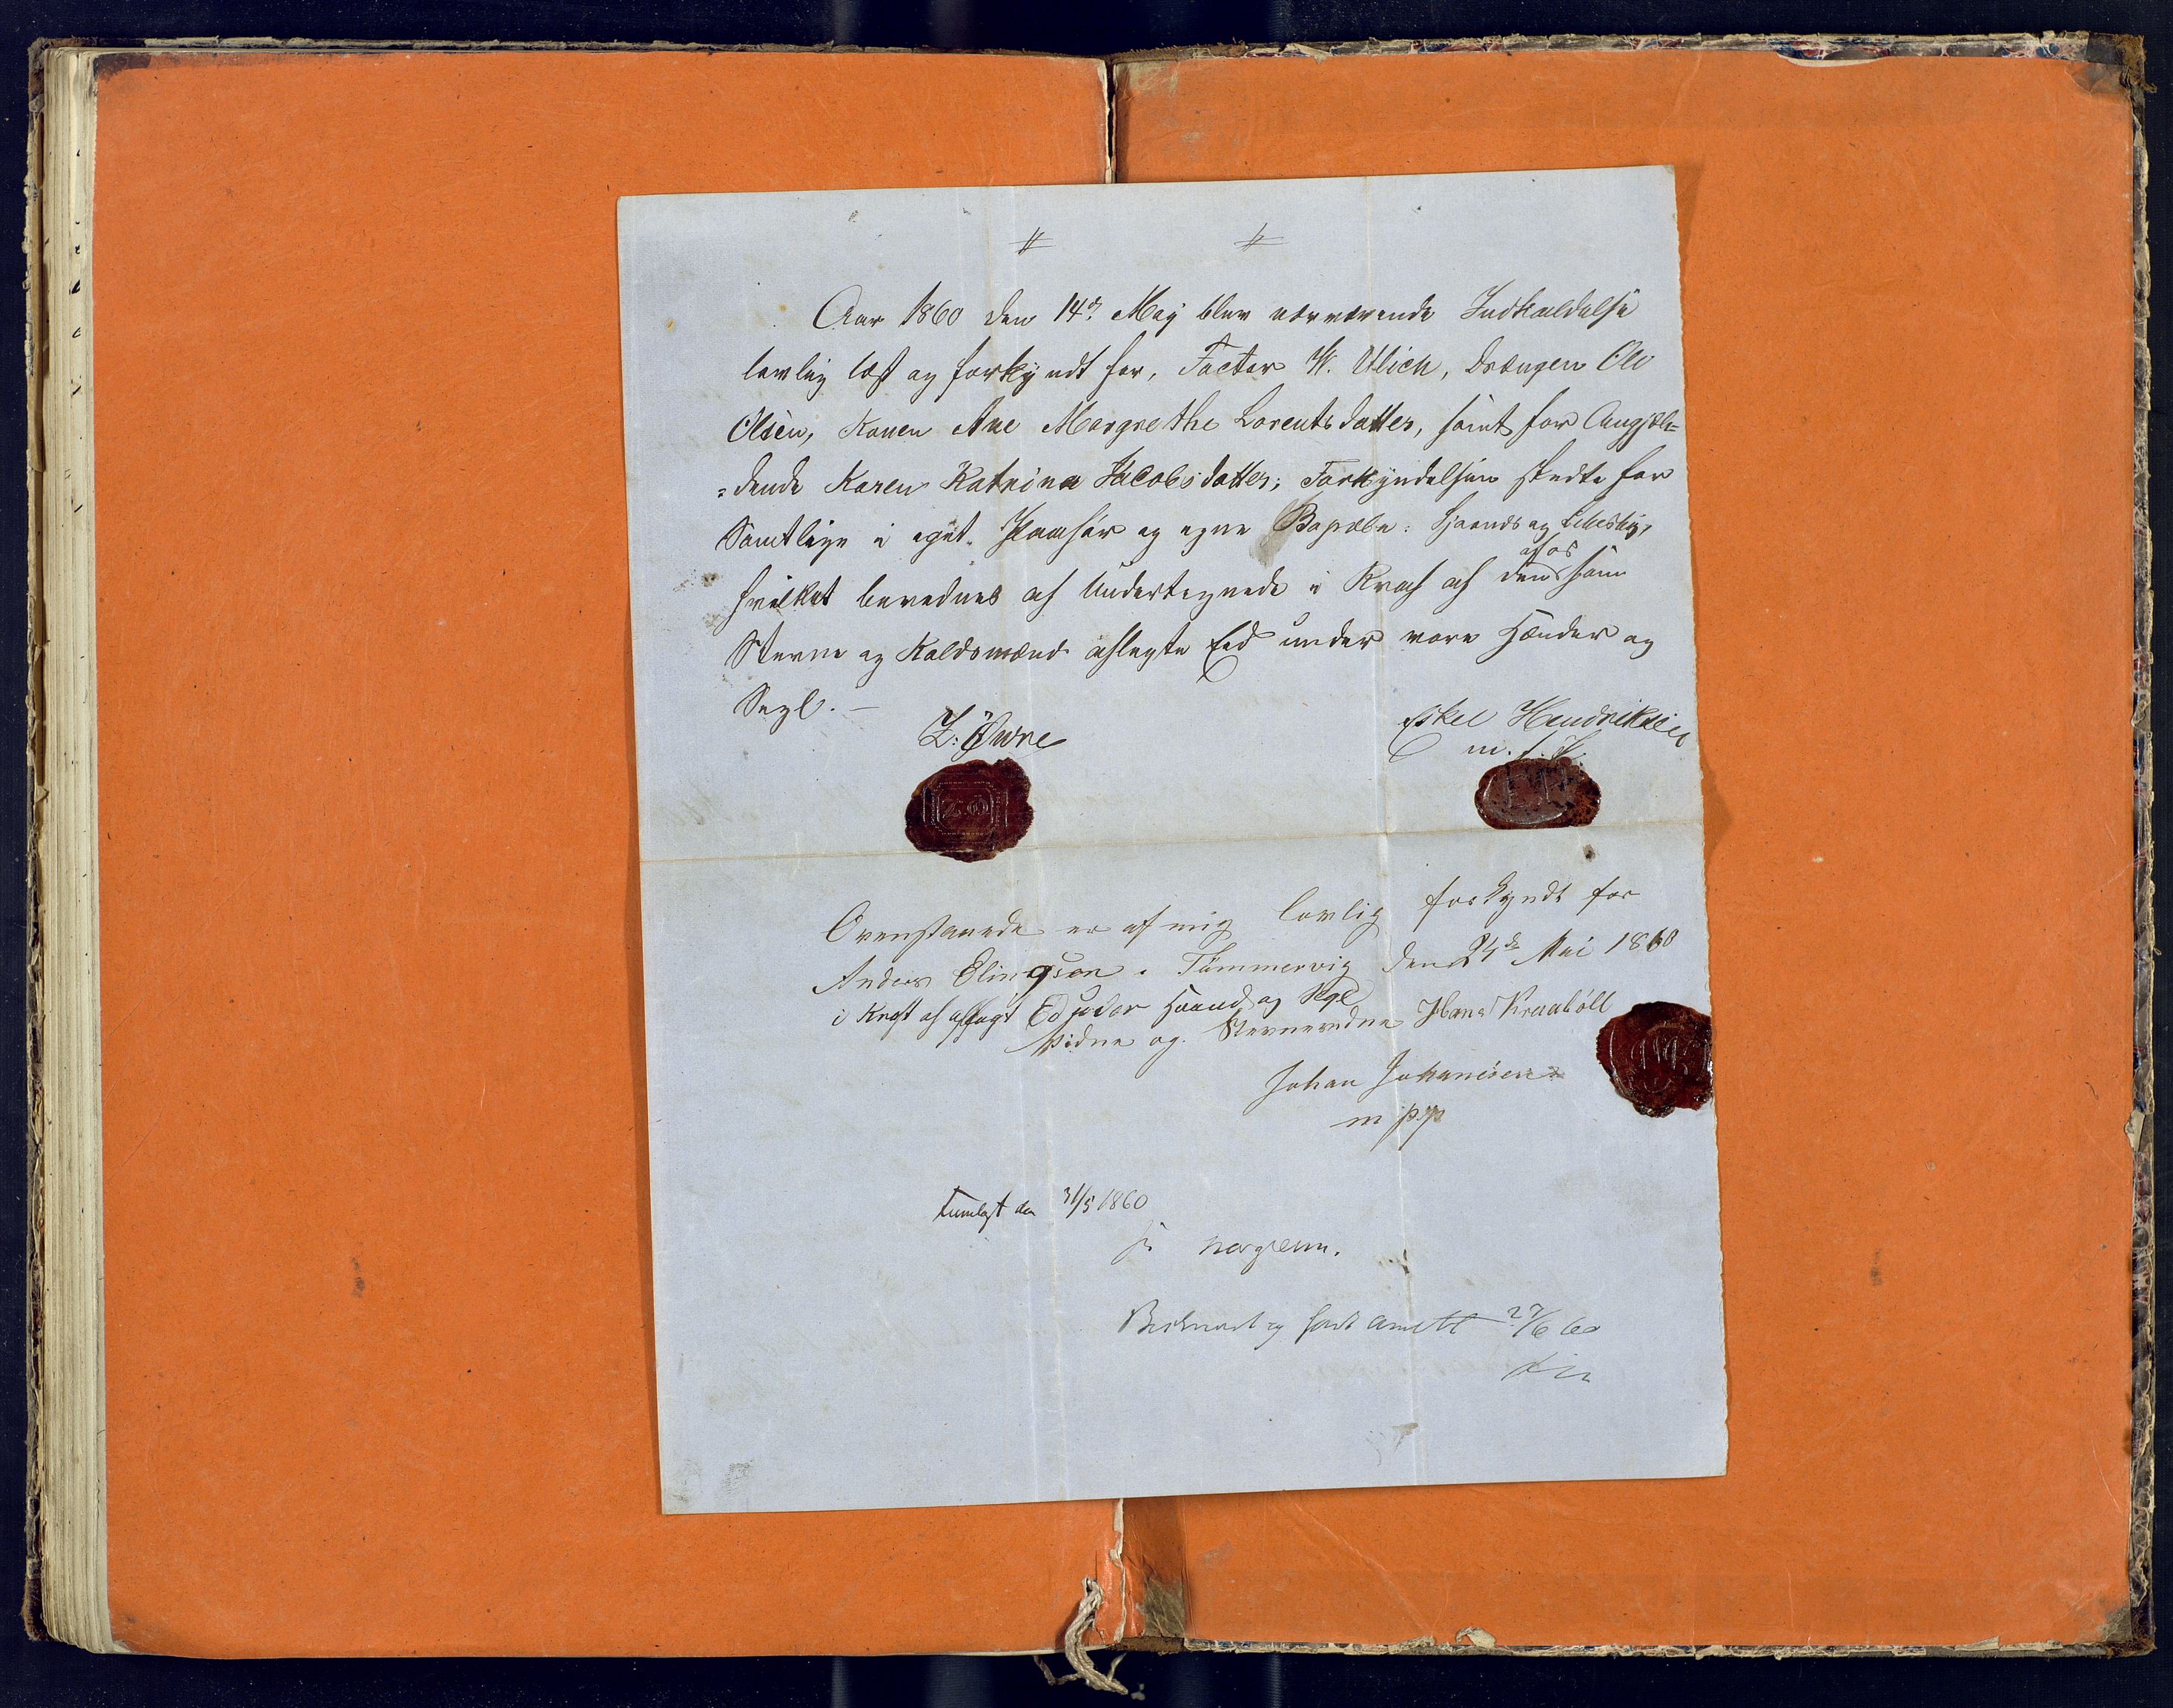 Aar 1860 den 14de May blev nærværende Indkaldelse
lovlig læst og forkyndt for, Factor W. Ulich, Drængen Ole
Olsen, Konen Ane Margrethe Lorentsdatter, samt for Angjæl=
=dende Karen Katrina Jacobsdatter; Forkyndelsen skedte for
Samtlige i eget Paahør og egne Bopæle: og Lebesby,
af os
hvilket bevidnes af Undertegnede i Kraft af den som
Stevne og Kaldsmænd aflagte Eed under vore Hænder og
Segl. —
Z: Øwre
Eskel Hendriksen
m. f. P.
Z Ø
Ovenstaaende er af mig lovlig forkyndt for
Anders Elingsen i Tømmervig den 24de Mai 1860
i Kraft af aflagt Ed under Haand og Segl
Vidne og Stevnevidne Hans Kraabøll
Johan Johannesen
m p p
Fremlagt den 31/5 1860
27/6 60